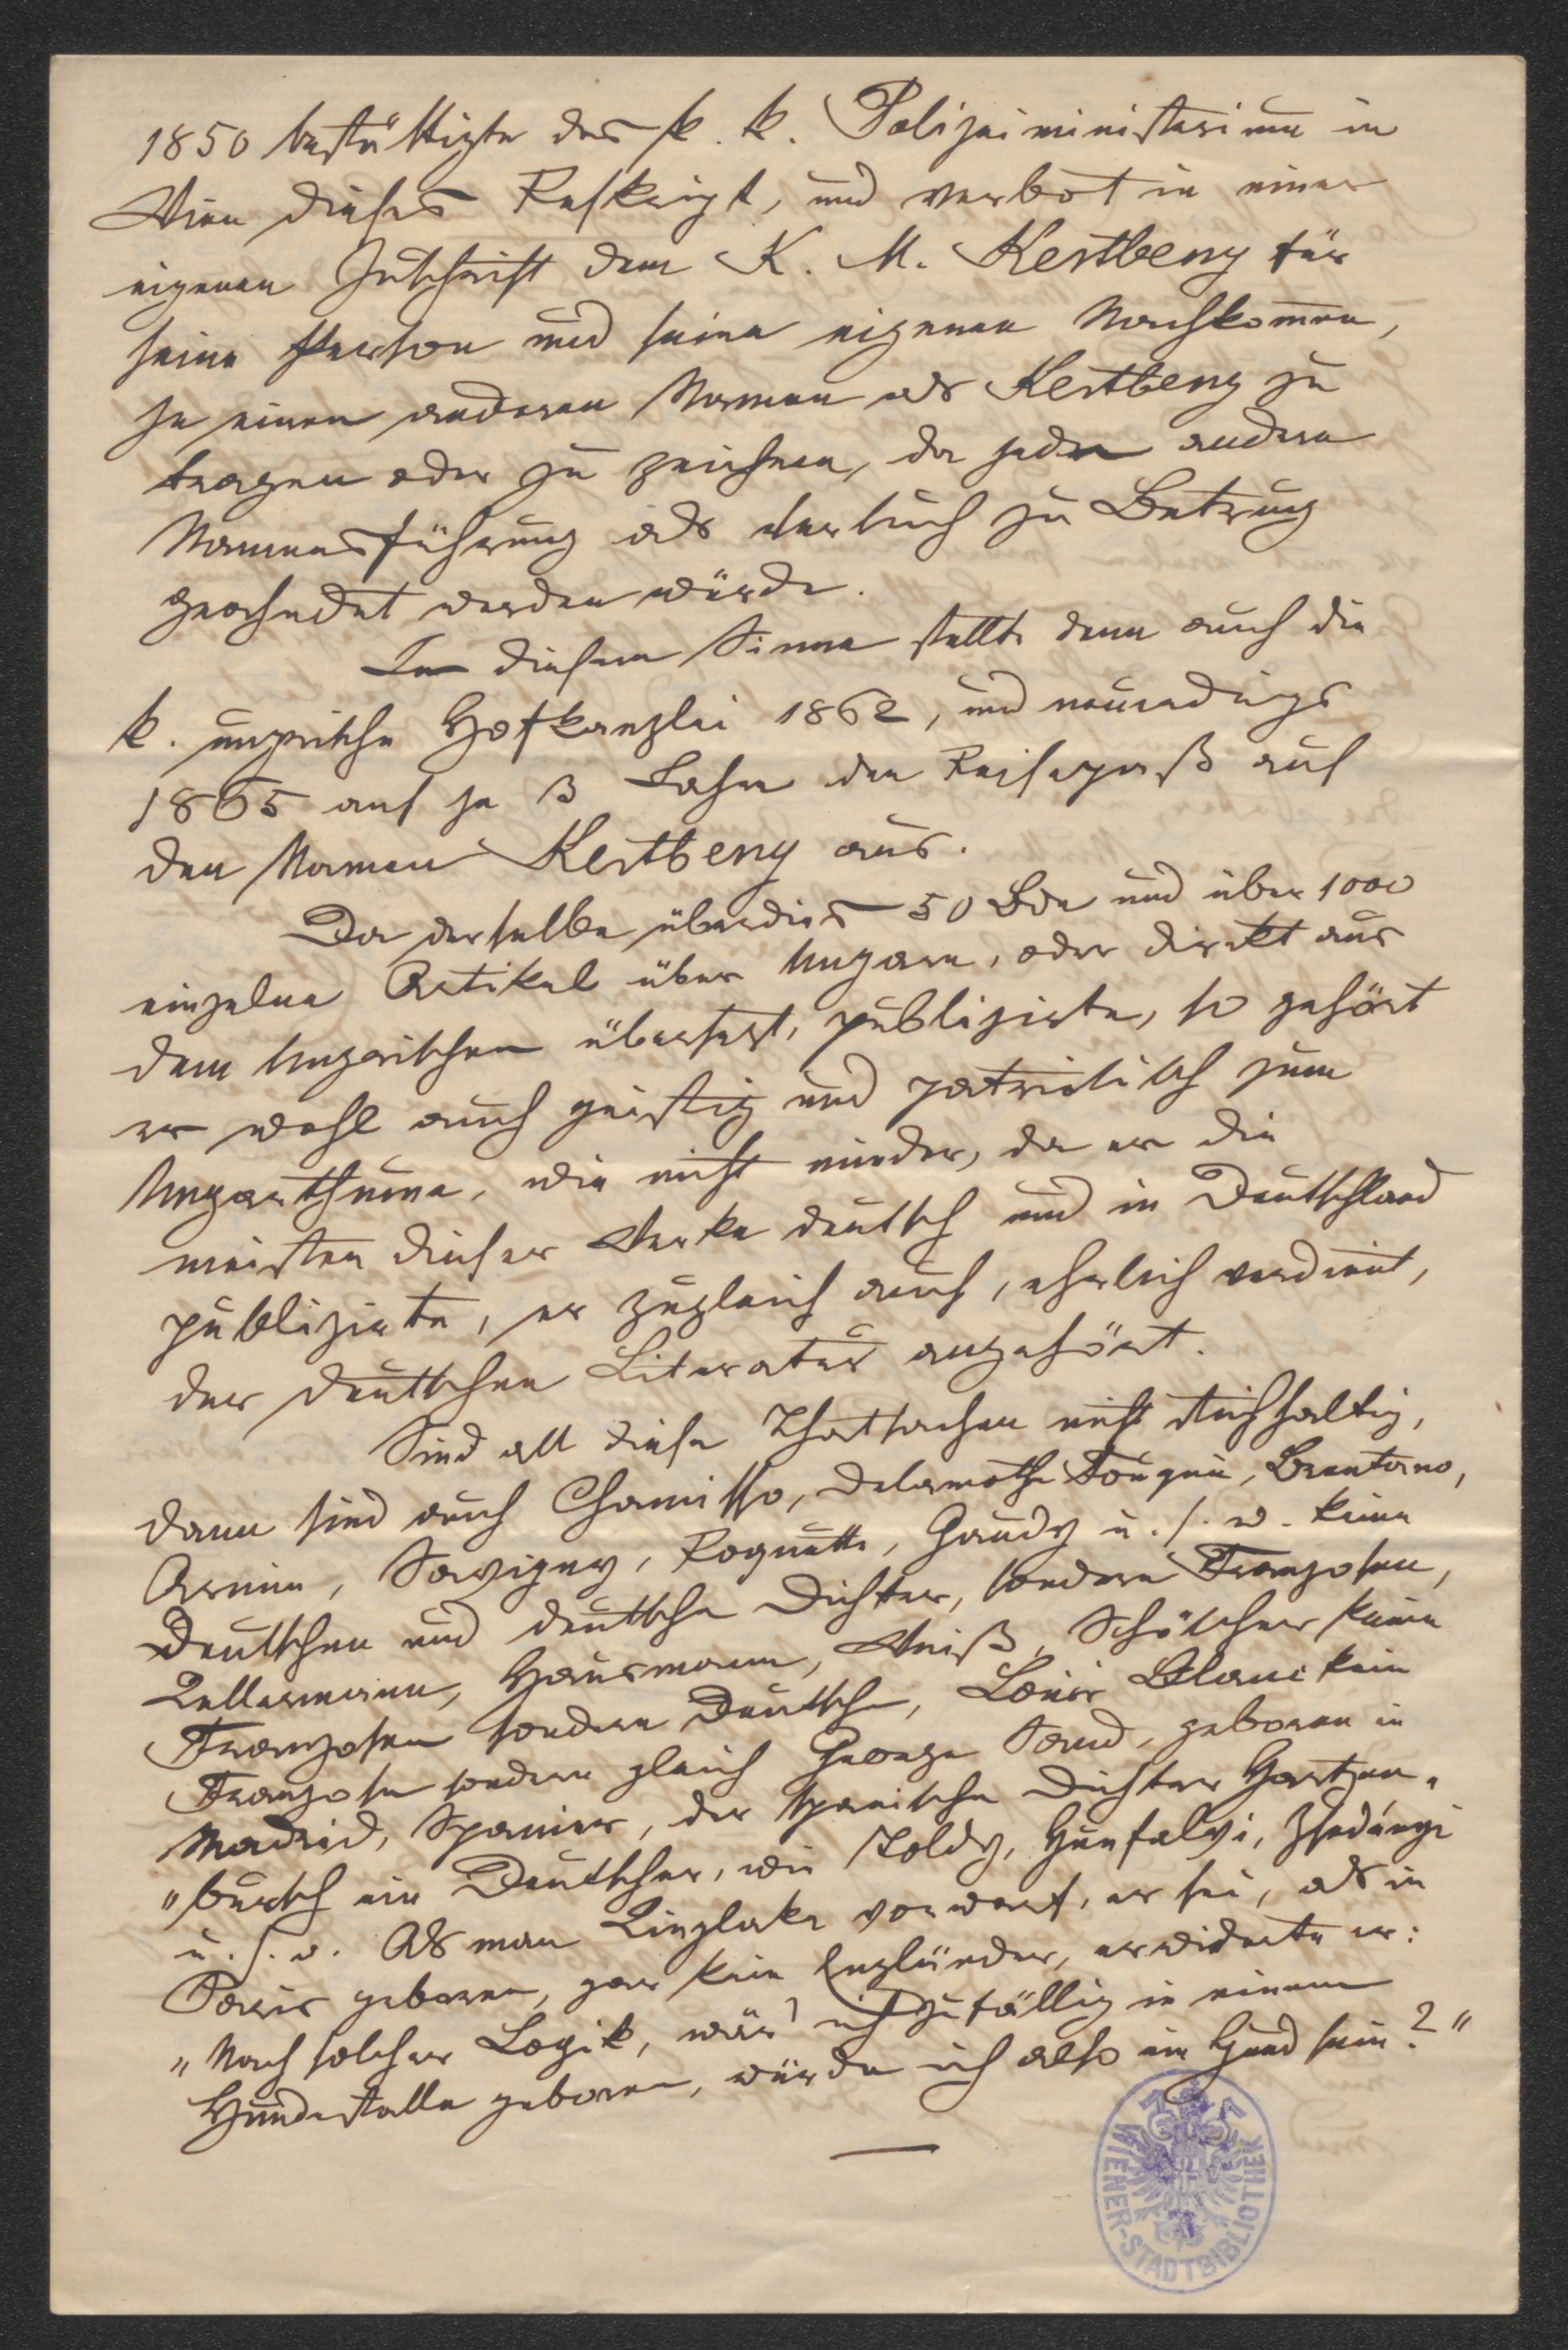 1850 bestättigte das k. k. Polizeiministerium in
Wien dieses Reskript, und verbot in einer
eigenen Zuschrift dem K. M. Kertbeny für
seine Person und seine eigenen Nachkom̅en,
je einen anderen Namen als Kertbeny zu
tragen oder zu zeichnen, da jede andere
Namensführung als Versuch zu Betrug
geahndet werden würde.
In diesem Sinne stellte denn auch die
k. ungrische Hofkanzlei 1862, und neuerdings
1865 auf je 3 Jahre den Reisepaß auf
den Namen Kertbeny aus.
Da derselbe überdies 50 Bde und über 1000
einzelne Artikel über Ungarn, oder direkt aus
dem Ungrischen übersezt, publizirte, so gehört
er wohl auch geistig und patriotisch zum
Ungarthume, wie nicht minder, da er die
meisten dieser Werke deutsch und in Deutschland
publizirte, er zugleich auch, ehrlich verdient,
der deutschen Literatur angehört.
Sind all diese Thatsachen nicht stichhaltig,
dann sind auch Chamisso, Delamothe Fouquè, Brentano,
Arnim, Savigny, Roquette, Gaudy u. s. w. keine
Deutschen und deutsche Dichter, sondern Franzosen,
Kellermann, Hausmann, Weiß, Schölcher keine
Franzosen sondern Deutsche, Louis Blanc kein
Franzose sondern gleich George Sand, geboren in
Madrid, Spanier, der spanische Dichter Hartzen„
„busch ein Deutscher, wie Toldy, Hunfalvi, Zsedényi
u. s. w. Als man Kinglake vorwarf, er sei, als in
Paris geboren, gar kein Engländer, erwiderte er:
„Nach solcher Logik, wär' ich zufällig in einem
Hundestalle geboren, würde ich also ein Hund sein?"
WIENER-STADTBIBLIOTHEK